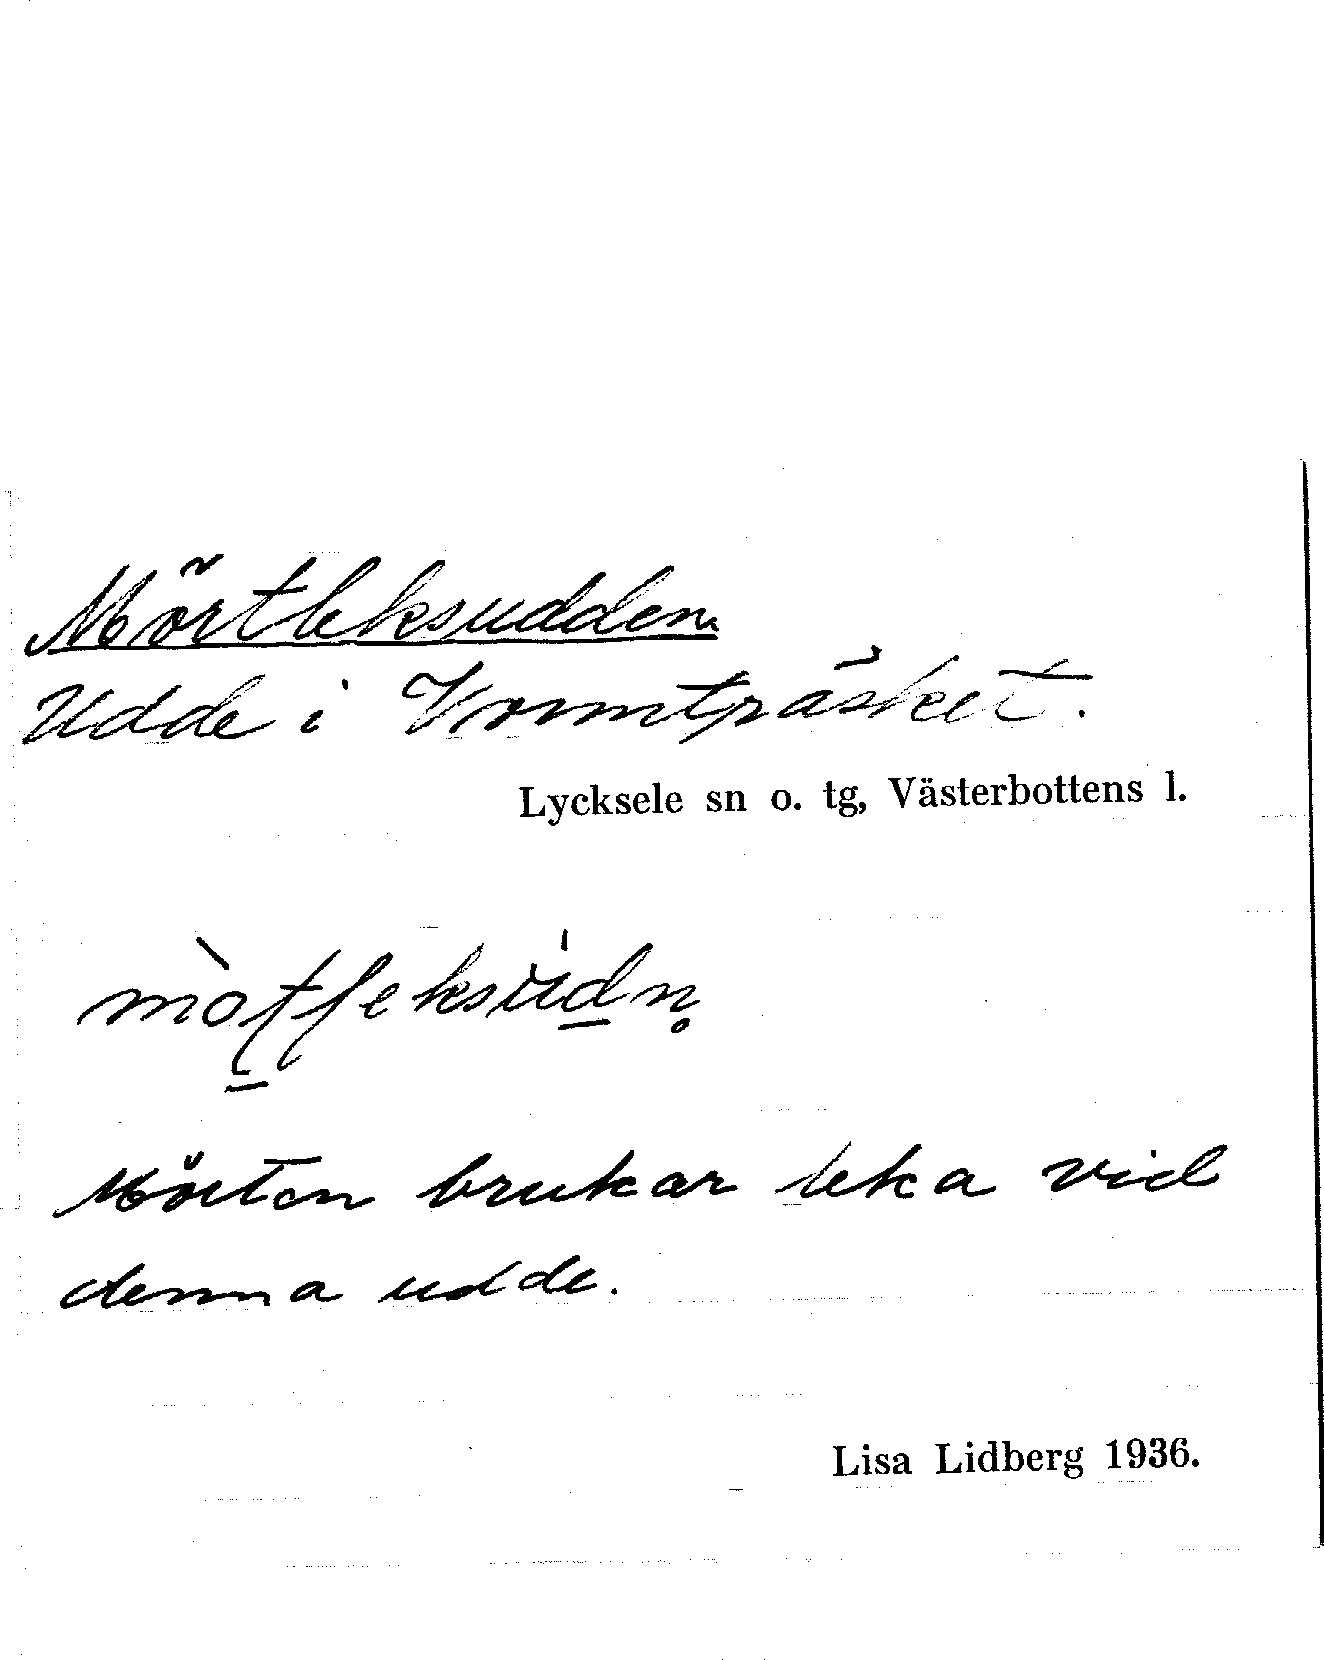 Mörtleksudden
Udde i Vormträsket.
Lycksele sn o. tg, Västerbottens l.
Mörten brukar leka vid
denna udde.
Lisa Lidberg 1936.